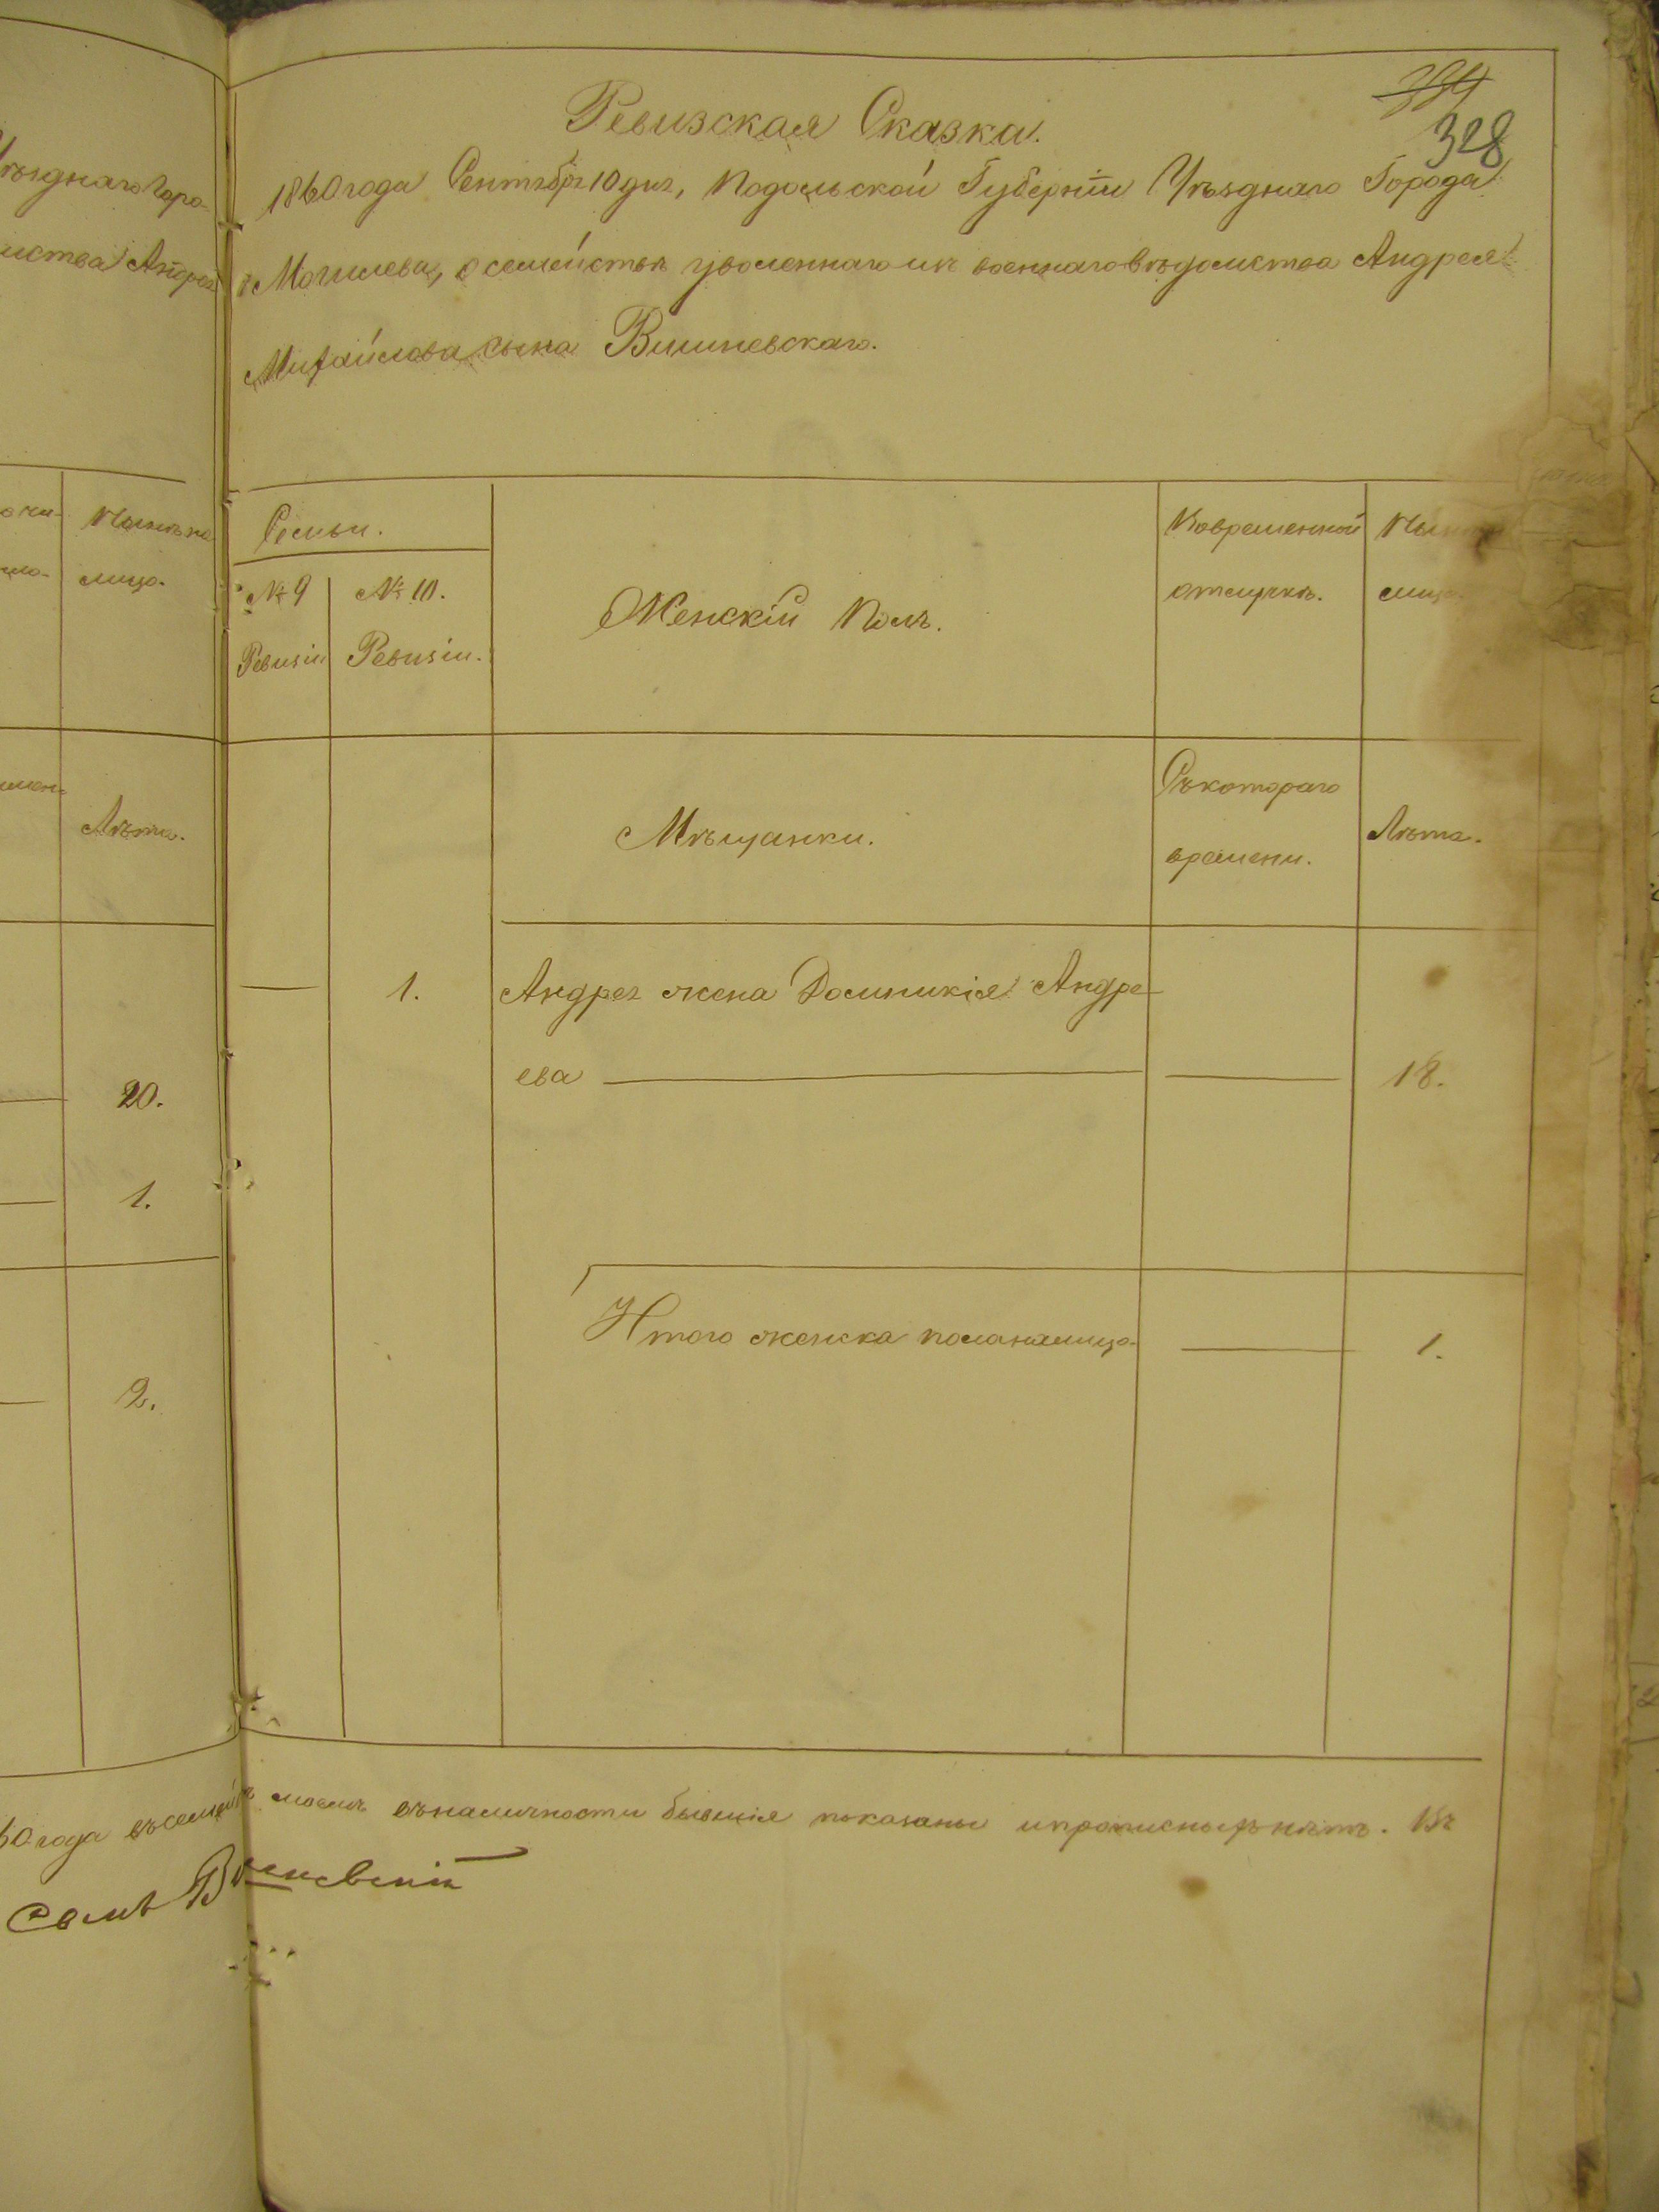 Ревизская Сказка.
334
328
1860 года Сентября 10 дня, Подольской Губерніи Уѣзднаго Города
Могилева, о семействѣ уволеннаго изъ военнаго вѣдомства Андрея
Михайлова сына Вишневскаго.
Семьи.
№ 9
Ревизіи
№ 10.
Ревизіи.
Женскій Полъ.
Во временной
отлучкѣ.
Мѣщанки.
Съ котораго
времени.
Лѣта.
1.
Андрея жена Доминикія Андре
ева
18.
Итого женска пола на лицо
1.
Уѣзднаго Горо-
Андрея
Нынѣ на
лицо.
Лѣта.
20.
1.
2.
года въ семействѣ моемъ въ наличности бывшія показаны и прописныхъ нѣтъ. Въ
Вишневскій